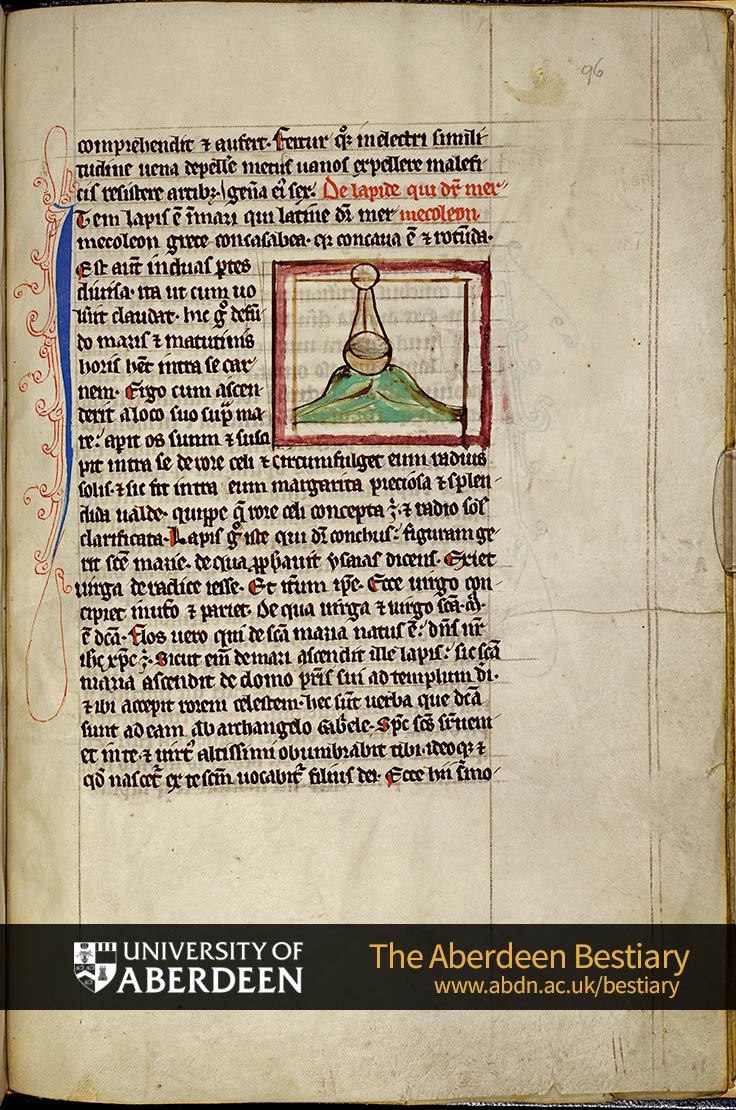 96
comprehendit ⁊ aufert. Fertur qr̄ in electri simili
tudine uena depelłe metus uanos expellere malefi
cis resistere artibꝫ. gen̄a eī sex. De lapide qui dr̄ mer
Item lapis ē ī mari qui latine dr̄ mer mecoleon.
mecoleon grece concasabea. qr concaua ē ⁊ rotūda.
Est aūt in duas ꝑtes
diuisa. ita ut cum uo
lūit claudat. hic gͦ de fū
do maris ⁊ matutinis
horis hēt intra se car
nem. Ergo cum ascen
derit a loco suo sup̄ ma
re: apit os suum ⁊ susci
pit intra se de rore celi ⁊ circumfulget eum radius
solis. ⁊ sic fit intra eum margarita preciosa ⁊ splen
dida ualde. quippe q̄ rore celi concepta ē. ⁊ radio sol̄
clarificata. Lapis gͦ iste qui dr̄ conchus: figuram ge
rit scē marie. de qua ꝓphauit ysaias dicens. Exiet
uirga de radice iesse. Et itūm ip̄e. Ecce uirgo con
cipiet in uto ⁊ pariet. De qua uirga ⁊ uirgo scā .m̄.
ē dcā. flos uero qui de scā maria natus ē: dn̄s nr̄
ihc xpc ē. Sicut eīn de mari ascendit ille lapis: sic scā
maria ascendit de domo pr̄is sui ad templum dī.
⁊ ibi accepit rorem celestem. hec sūt uerba que dcā
sunt ad eam ab archangelo Gabriele. Spc scs sr̄ueni
et in te. ⁊ uirtˢ altissimi obumbrabit tibi. ideoqꝫ ⁊
qd̄ nascet᷑ ex te scm̄ uocabit᷑ filius dei. Ecce hii s̄mo
UNIVERSITY OF
ABERDEEN
The Aberdeen Bestiary
www.abdn.ac.uk/bestiary